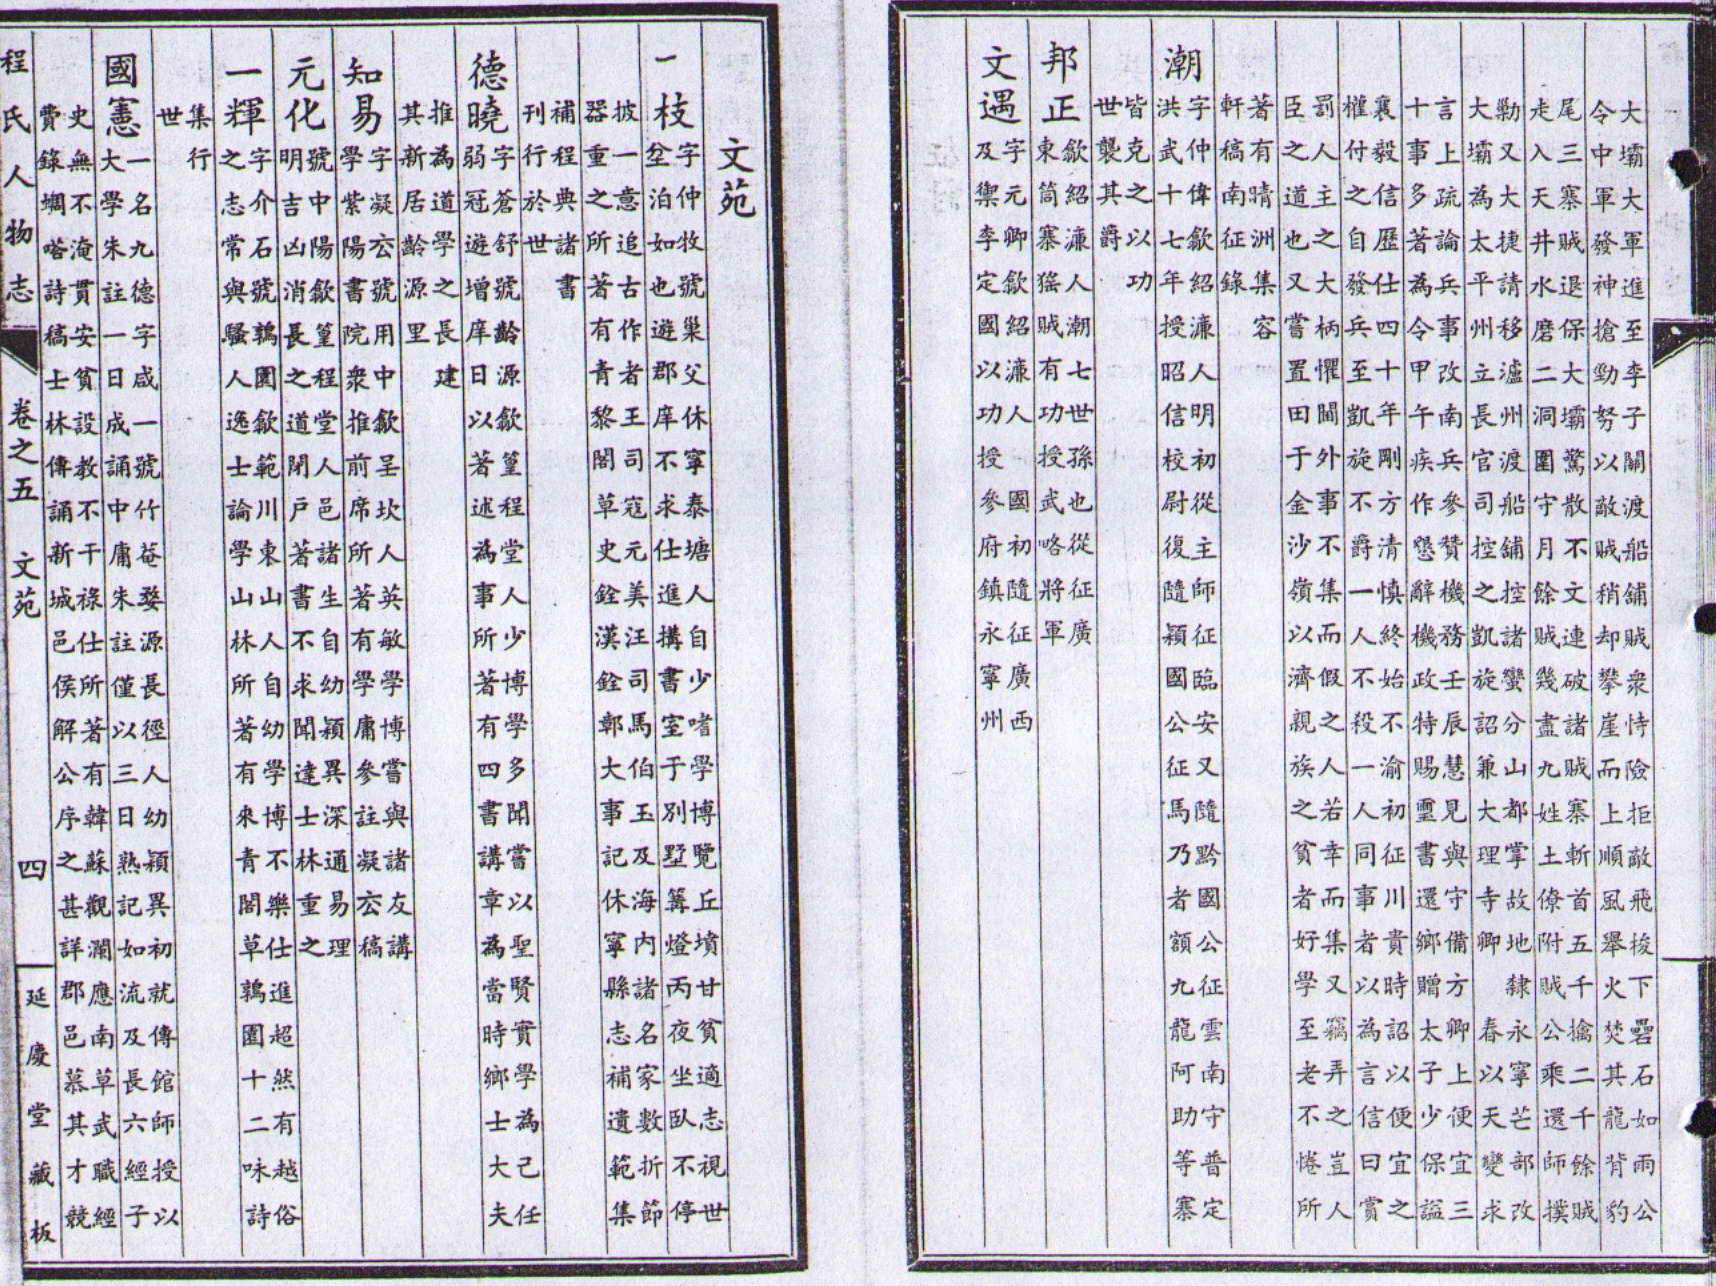 大壩大軍進至李子關渡船舖賊衆恃險拒敵飛梭下礨石如雨公
令中軍發神槍勁努以敵賊稍却攀崖而上順風舉火焚其龍背豹
尾三寨賊退保大壩驚散不文連破諸賊寨斬首五千擒二千餘賊
走入天井水磨二洞圍守月餘賊幾盡九姓土僚附賊公乘還師撲
勦又大捷請移瀘州渡船舖控諸蠻分山都掌故地隸永寧芒部改
大壩為太平州立長官司控之凱旋詔兼大理寺卿 春以天變求
言上疏論兵事改南兵參贊機務壬辰慧見與守備方卿上便宜三
十事多著為令甲午疾作懇辭機政特賜璽書還鄉贈太子少保謚
襄毅信歷仕四十年剛方清慎終始不渝初征川貴時詔以便宜之
權付之自發兵至凱旋不爵一人不殺一人同事者以為言信曰賞
罰人主之大柄懼閫外事不集而假之人若幸而集又竊弄之豈人
臣之道也又嘗置田于金沙嶺以濟親族之貧者好學至老不惓所
著有晴洲集容
軒稿南征錄
潮
字仲偉歙紹濂人明初從主師征臨安又隨黔國公征雲南守普定
洪武十七年授昭信校尉復隨穎國公征馬乃者額九龍阿助等寨
皆克之以功
世襲其爵
邦正
歙紹濂人潮七世孫也從征廣
東筒寨猺賊有功授武略將軍
文遇
字元卿歙紹濂人國初隨征廣西
及禦李定國以功授參府鎮永寧州
文苑
一枝
字仲牧號巢父休寧泰塘人自少嗜學博覽丘墳甘貧適志視世
坌泊如也遊郡庠不求仕進搆書室于別墅篝燈丙夜坐臥不停
披一意追古作者王司寇元美汪司馬伯玉及海內諸名家數折節
器重之所著有青黎閣草史銓漢銓鄣大事記休寧縣志補遺範集
補程典諸書
刊行於世
德曉
字蒼舒號齡源歙篁程堂人少博學多聞嘗以聖賢實學為己任
弱冠遊增庠日以著述為事所著有四書講章為當時鄉士大夫
推為道學之長建
其新居齡源里
知易
字凝玄號用中歙呈坎人英敏學博嘗與諸友講
學紫陽書院衆推前席所著有學庸參註凝玄稿
元化
號中陽歙篁程堂人邑諸生自幼穎異深通易理
明吉凶消長之道閉戶著書不求聞達士林重之
一輝
字介石號鶉園歙範川東山人自幼學博不樂仕進超然有越俗
之志常與騷人逸士論學山林所著有來青閣草鶉園十二味詩
集行
世
國憲
一名九德字咸一號竹菴婺源長徑人幼穎異初就傳館師授以
大學朱註一日成誦中庸朱註僅以三日熟記如流及長六經子
史無不淹貫安貧設教不干祿仕所著有韓蘇觀瀾應南草武職經
費錄堋喀詩稿士林傳誦新城邑侯解公序之甚詳郡邑慕其才競
程氏人物志
卷之五 文苑
四
延慶堂藏板